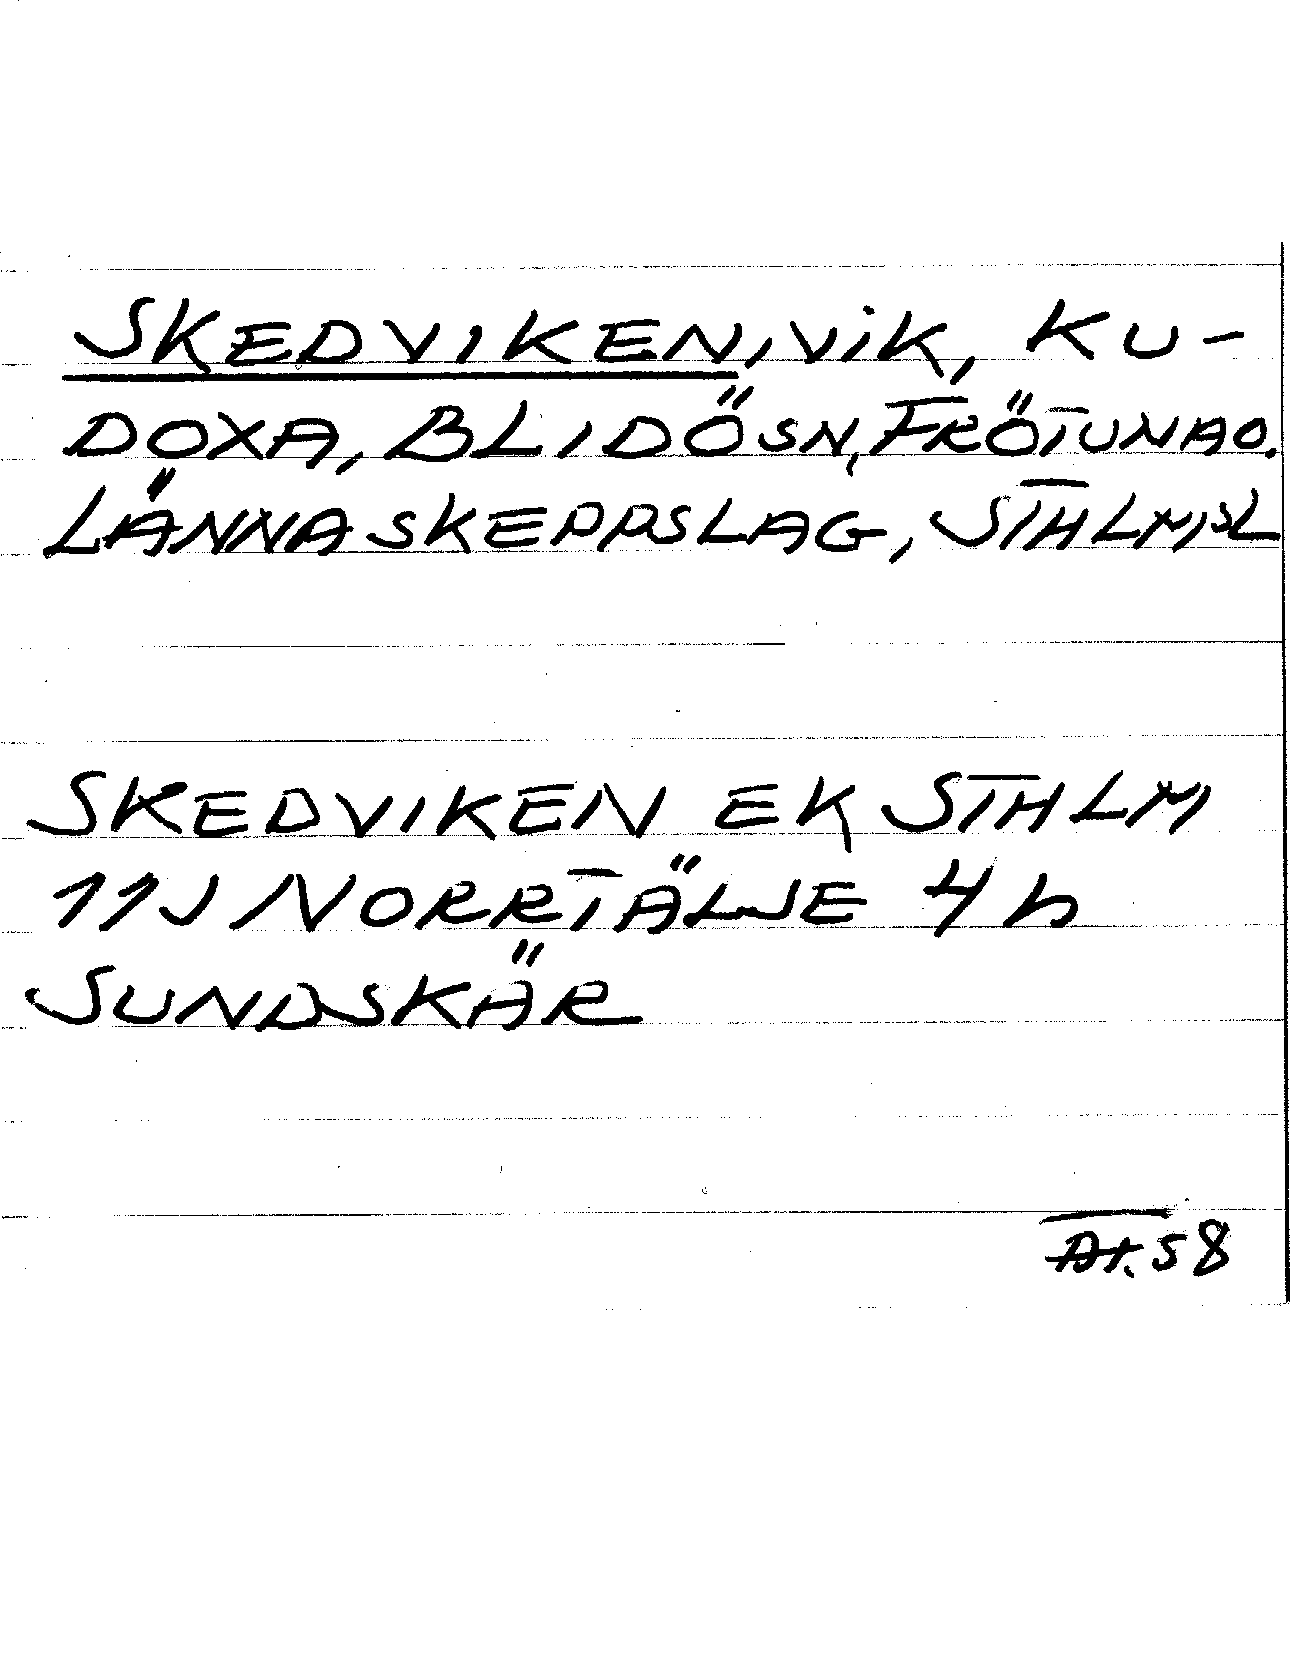 SKEDVIKEN, ViK, KU-
DOXA, BLIDÖ SN, FRÖTUNA O.
LÄNNA SKEPPSLAG, STHLMSL
SKEDVIKEN EK STHLM
11J NORRTÄLJE 4 b
SUNDSKÄR
58